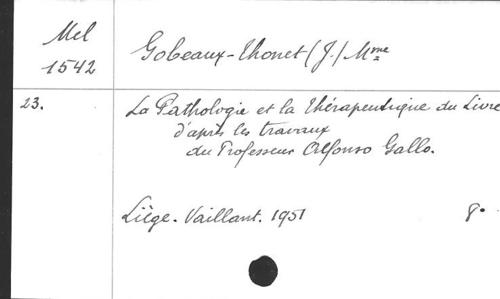 Mel
1542
Gobeaux-Thonet (J.) Mme
23.
La Pathologie et la thérapeutique du Livre
d'après les travaux
du Professeur Alfonso Gallo.
Liège. Vaillant. 1951
8°